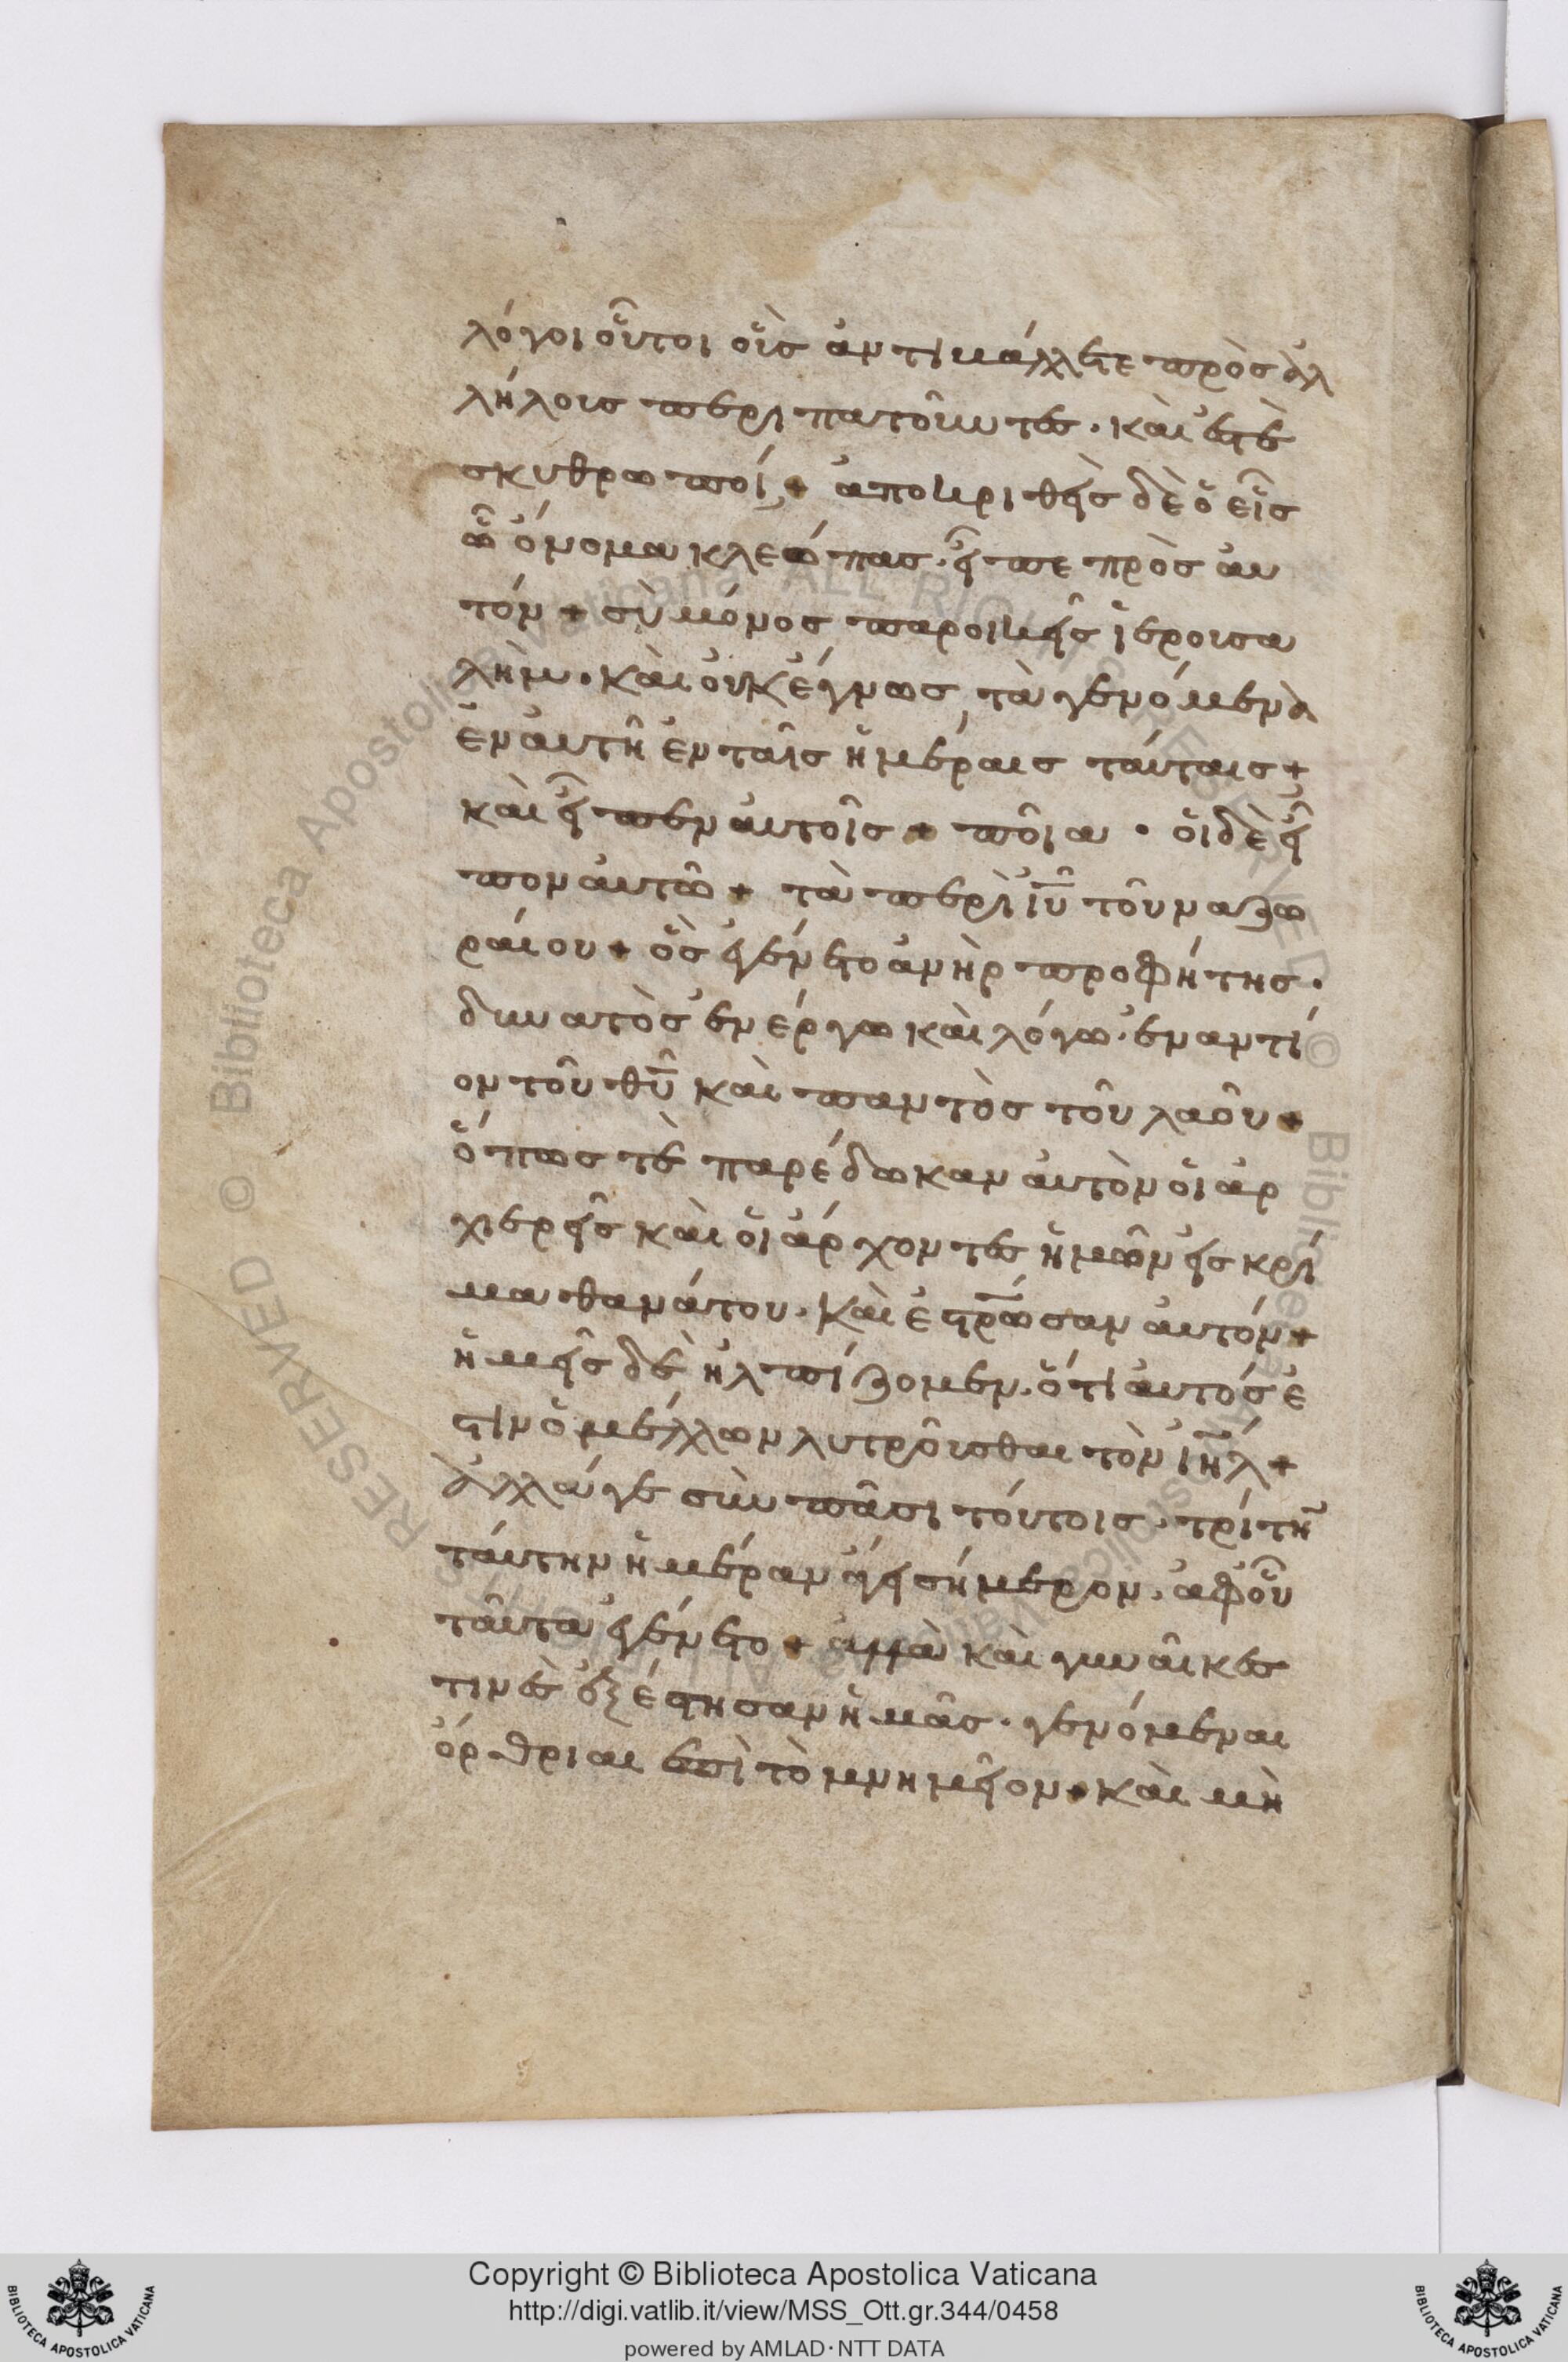 λόγοι οὗτοι οἷς ἀντιμάλλετε πρὸς ἀλ
λήλοις περιπατοῦντες · καὶ ἐστὲ
σκυθρωποί + ἀποκριθεὶς δὲ ὁ εἷς
ὧ ὄνομα κλεώπας · εἶπε πρὸς αυ
τόν + σὺ μόνος παροικεῖς ἱερουσα
λὴμ · καὶ οὐκ ἔγνως τὰ γενόμενα
ἐν αὐτῆ ἐν ταῖς ἡμέραις ταύταις +
καὶ εἶπεν αὐτοῖς + ποῖα · οἱ δὲ εἶ
πον αὐτῶ + τὰ περὶ ἰῦ τοῦ ναζω
ραίου + ὃς ἐγένετο ἀνὴρ προφήτης ·
δυνατὸς ἐν έργω καὶ λόγω · ἐναντί
ον τοῦ θῦ καὶ παντὸς τοῦ λαοῦ +
ὅπως τὲ παρέδωκαν αὐτὸν οἱ ἀρ
χιερεῖς καὶ οἱ ἄρχοντες ἡμῶν εἰς κρί
μα θανάτου · καὶ ἐστρωσαν αὐτόν +
ἡμεῖς δὲ ἠλπίζομεν · ὅτι αὐτός ἐ
στιν ὁ μέλλων λυτροῦσθαι τὸν ἰηλ +
ἀλλάγε σὺν πᾶσι τούτοις · τρίτην
ταύτην ἡμέραν ἄγει σήμερον · ἀφοὗ
ταῦτα ἐγένετο + ἀλλὰ καὶ γυναῖκες
τινὲς ἐξέστησαν ἡμᾶς · γενόμεναι
ὄρθριαι ἐπὶ τὸ μνημεῖον + καὶ μὴ
Copyright © Biblioteca Apostolica Vaticana
http://digi.vatlib.it/view/MSS_Ott.gr.344/0458
powered by AMLAD·NTT DATA
BIBLIOTECA APOSTOLICA VATICANA
BIBLIOTECA APOSTOLICA VATICANA